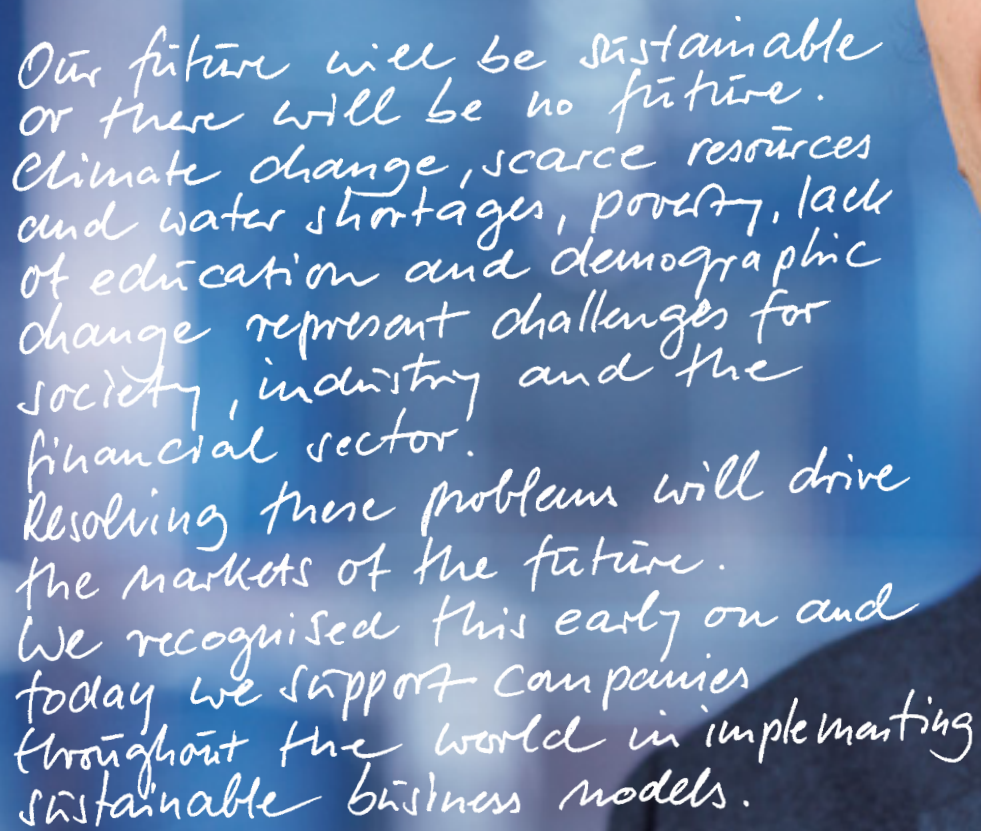 Our future will be sustainable
or there will be no future.
Climate change, scarce resources
and water shortages, poverty, lack
of education and demographic
change represent challenges for
society, industry and the
financial sector.
Resolving these problems will drive
the markets of the future.
We recognised this early on and
today we support companies
throughout the world in implementing
sustainable business models.